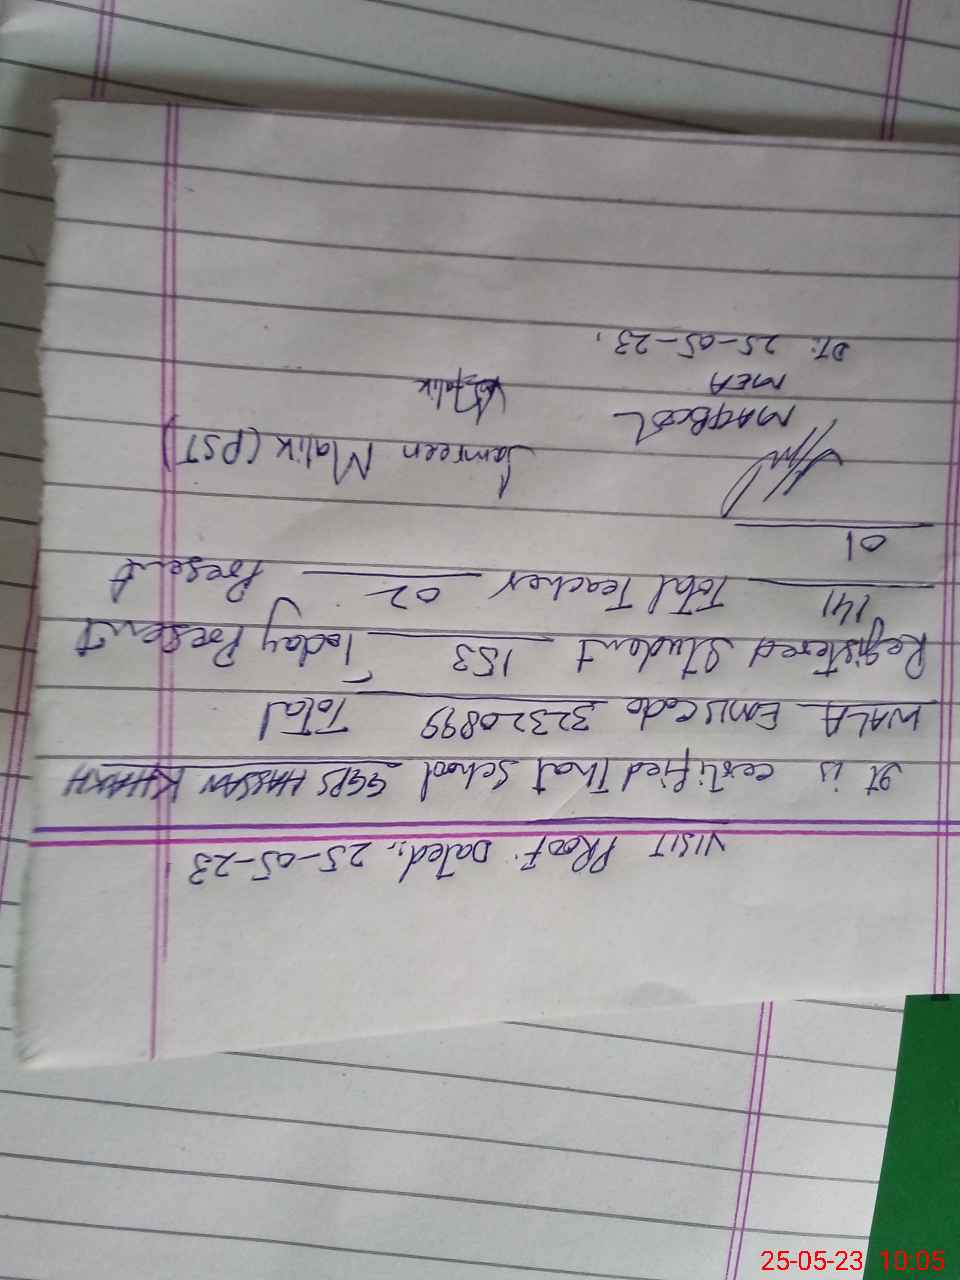 VISIT PROOF. Dated:, 25-05-23
It is certified That School GGPS HASSAN KHAKH
WALA Emis Code 32320899 Total
Registered Student 153 Today Present
141 Total Teacher 02 Present
01
Samreen Malik (PST)
MAQBOOL
MEA
DT: 25-05-23,
25-05-23 10:05